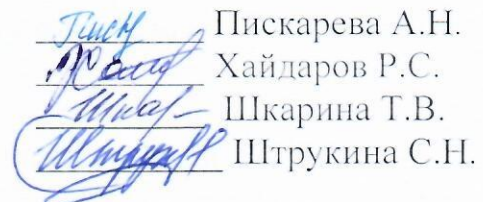 Пискарева А.Н.
Хайдаров Р.С.
Шкарина Т.В.
Штрукина С.Н.